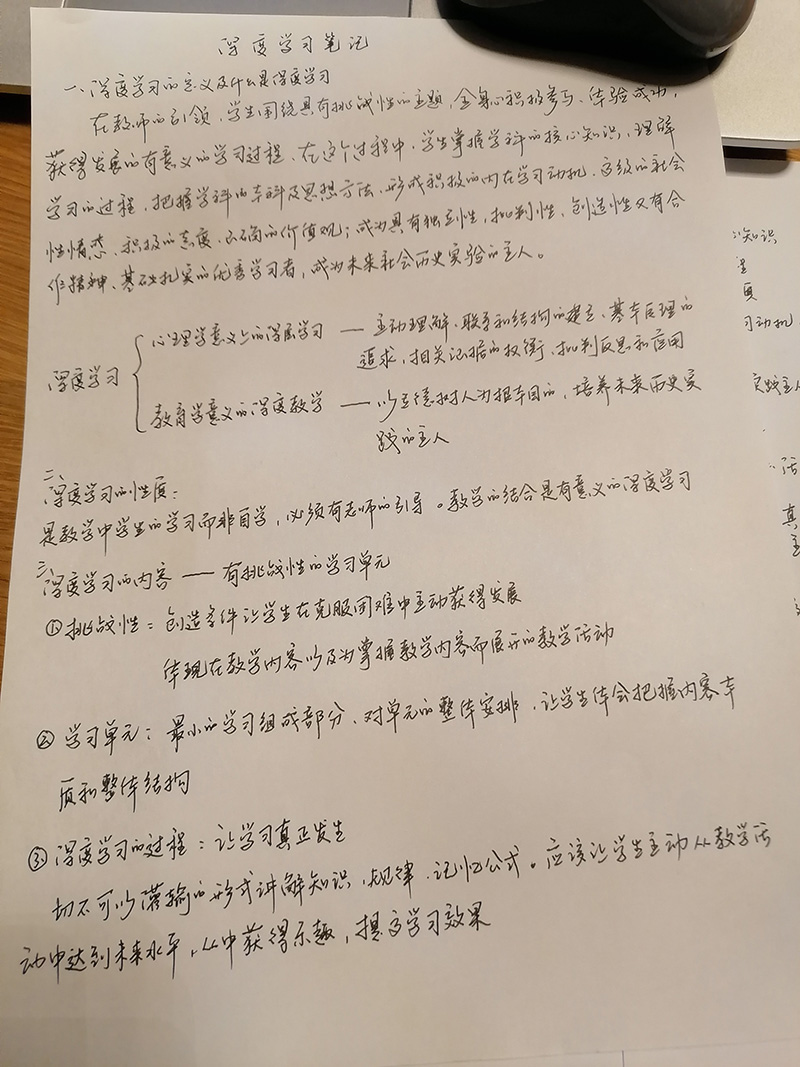 深度学习笔记
一、深度学习的定义及什么是深度学习
在教师的引领，学生围绕具有挑战性的主题，全身心积极参与、体验成功，
获得发展的有意义的学习过程、在这个过程中，学生掌握学科的核心知识，理解
学习的过程，把握学科的本科及思想方法、形成积极的内在学习动机、高级的社会
性情感、积极的态度、正确的价值观；成为具有独立性，批判性、创造性又有合
作精神、基础扎实的优秀学习者，成为未来社会历史实验的主人。
心理学意义上的深度学习 —— 主动理解、联系和结构的建立、基本原理的
追求，相关证据的权衡、批判反思和应用
深度学习
教育学意义的深度教学 —— 以立德树人为根本目的，培养未来历史实
践的主人
二、深度学习的性质：
是教学中学生的学习而非自学，必须有老师的引导。教学的结合是有意义的深度学习
三、深度学习的内容 —— 有挑战性的学习单元
①挑战性：创造条件让学生在克服困难中主动获得发展
体现在教学内容以及为掌握教学内容而展开的教学活动
② 学习单元：最小的学习组成部分、对单元的整体安排，让学生体会把握内容本
质和整体结构
③ 深度学习的过程：让学习真正发生
切不可以灌输的形式讲解知识，规律、记忆公式。应该让学生主动从教学活
动中达到未来水平，从中获得乐趣，提高学习效果
知识
习动机
实践主人
活
真